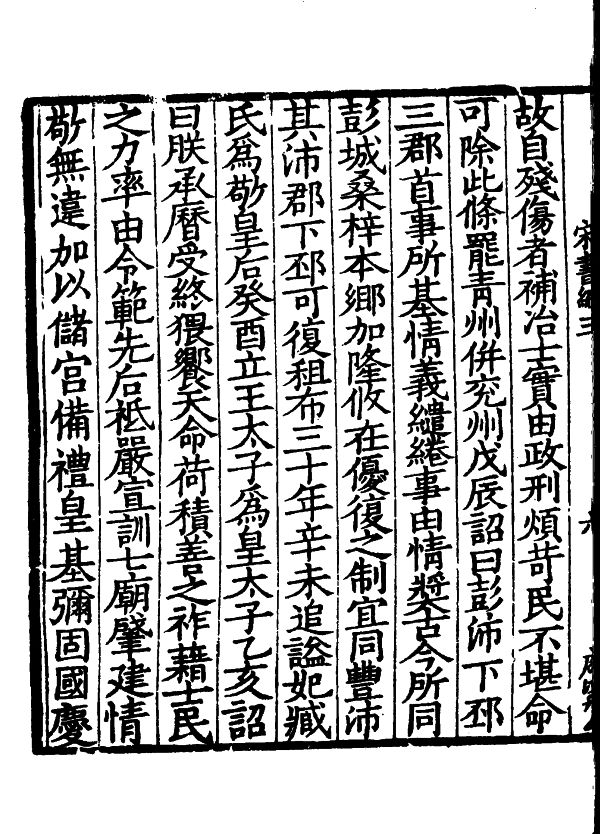 宋書紀三
故自殘傷者補冶士實由政刑煩苛民不堪命
可除此條罷青州併兖州戊辰詔曰彭沛下邳
三郡首事所基情義繾綣事由情奬古今所同
彭城桑梓本鄉加隆攸在優復之制宜同豐沛
其沛郡下邳可復租布三十年辛未追謚妃臧
氏爲敬皇后癸酉立王太子爲皇太子乙亥詔
曰朕承曆受終猥饗天命荷積善之祚藉士民
之力率由令範先后祗嚴宣訓七廟肇建情
敬無違加以儲宫備禮皇基彌固國慶